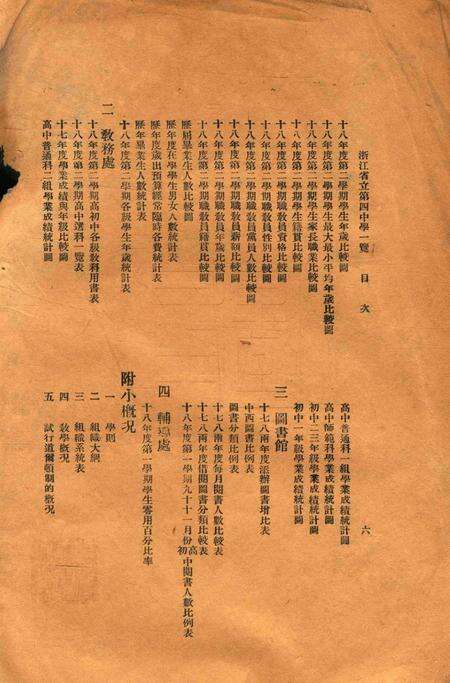 浙江省立第四中學一覽 目次 六
十八年度第二學期學生年歲比較圖
十八年度第二學期學生最大最小平均年歲比較圖
十八年度第二學期學生家長職業比較圖
十八年度第二學期學生籍貫比較圖
十八年度第二學期職教員資格比較圖
十八年度第二學期職教員性別比較圖
十八年度第二學期職教員黨員人數比較圖
十八年度第二學期職教員薪額比較圖
十八年度第二學期職教員年歲比較圖
十八年度第二學期職教員籍貫比較圖
歷屆畢業生人數比較圖
歷年度在學學生男女人數統計表
歷年度歲出預算經常臨時各費統計表
歷年畢業生人數統計表
十八年度第二學期各級學生年歲統計表
二 教務處
十八年度第二學期高初中各級教科用書表
十八年度第二學期高中選科一覽表
十七年度學業成績與年級比較圖
高中普通科二組學業成績統計圖
高中普通科一組學業成績統計圖
高中師範科學業成績統計圖
初中二三年級學業成績統計圖
初中一年級學業成績統計圖
三 圖書館
十七八兩年度添辦圖書增比表
中西圖書比例表
圖書分類比例表
十七八兩年度每月閱書人數比較表
十七八兩年度借閱圖書分類比較表
十八年度第一學期九十十一月份高初中閱書人數比例表
四 輔導處
十八年度第一學期學生零用百分比率
附小概況
一 學則
二 組織大綱
三 組織系統表
四 教學概況
五 試行道爾頓制的概況